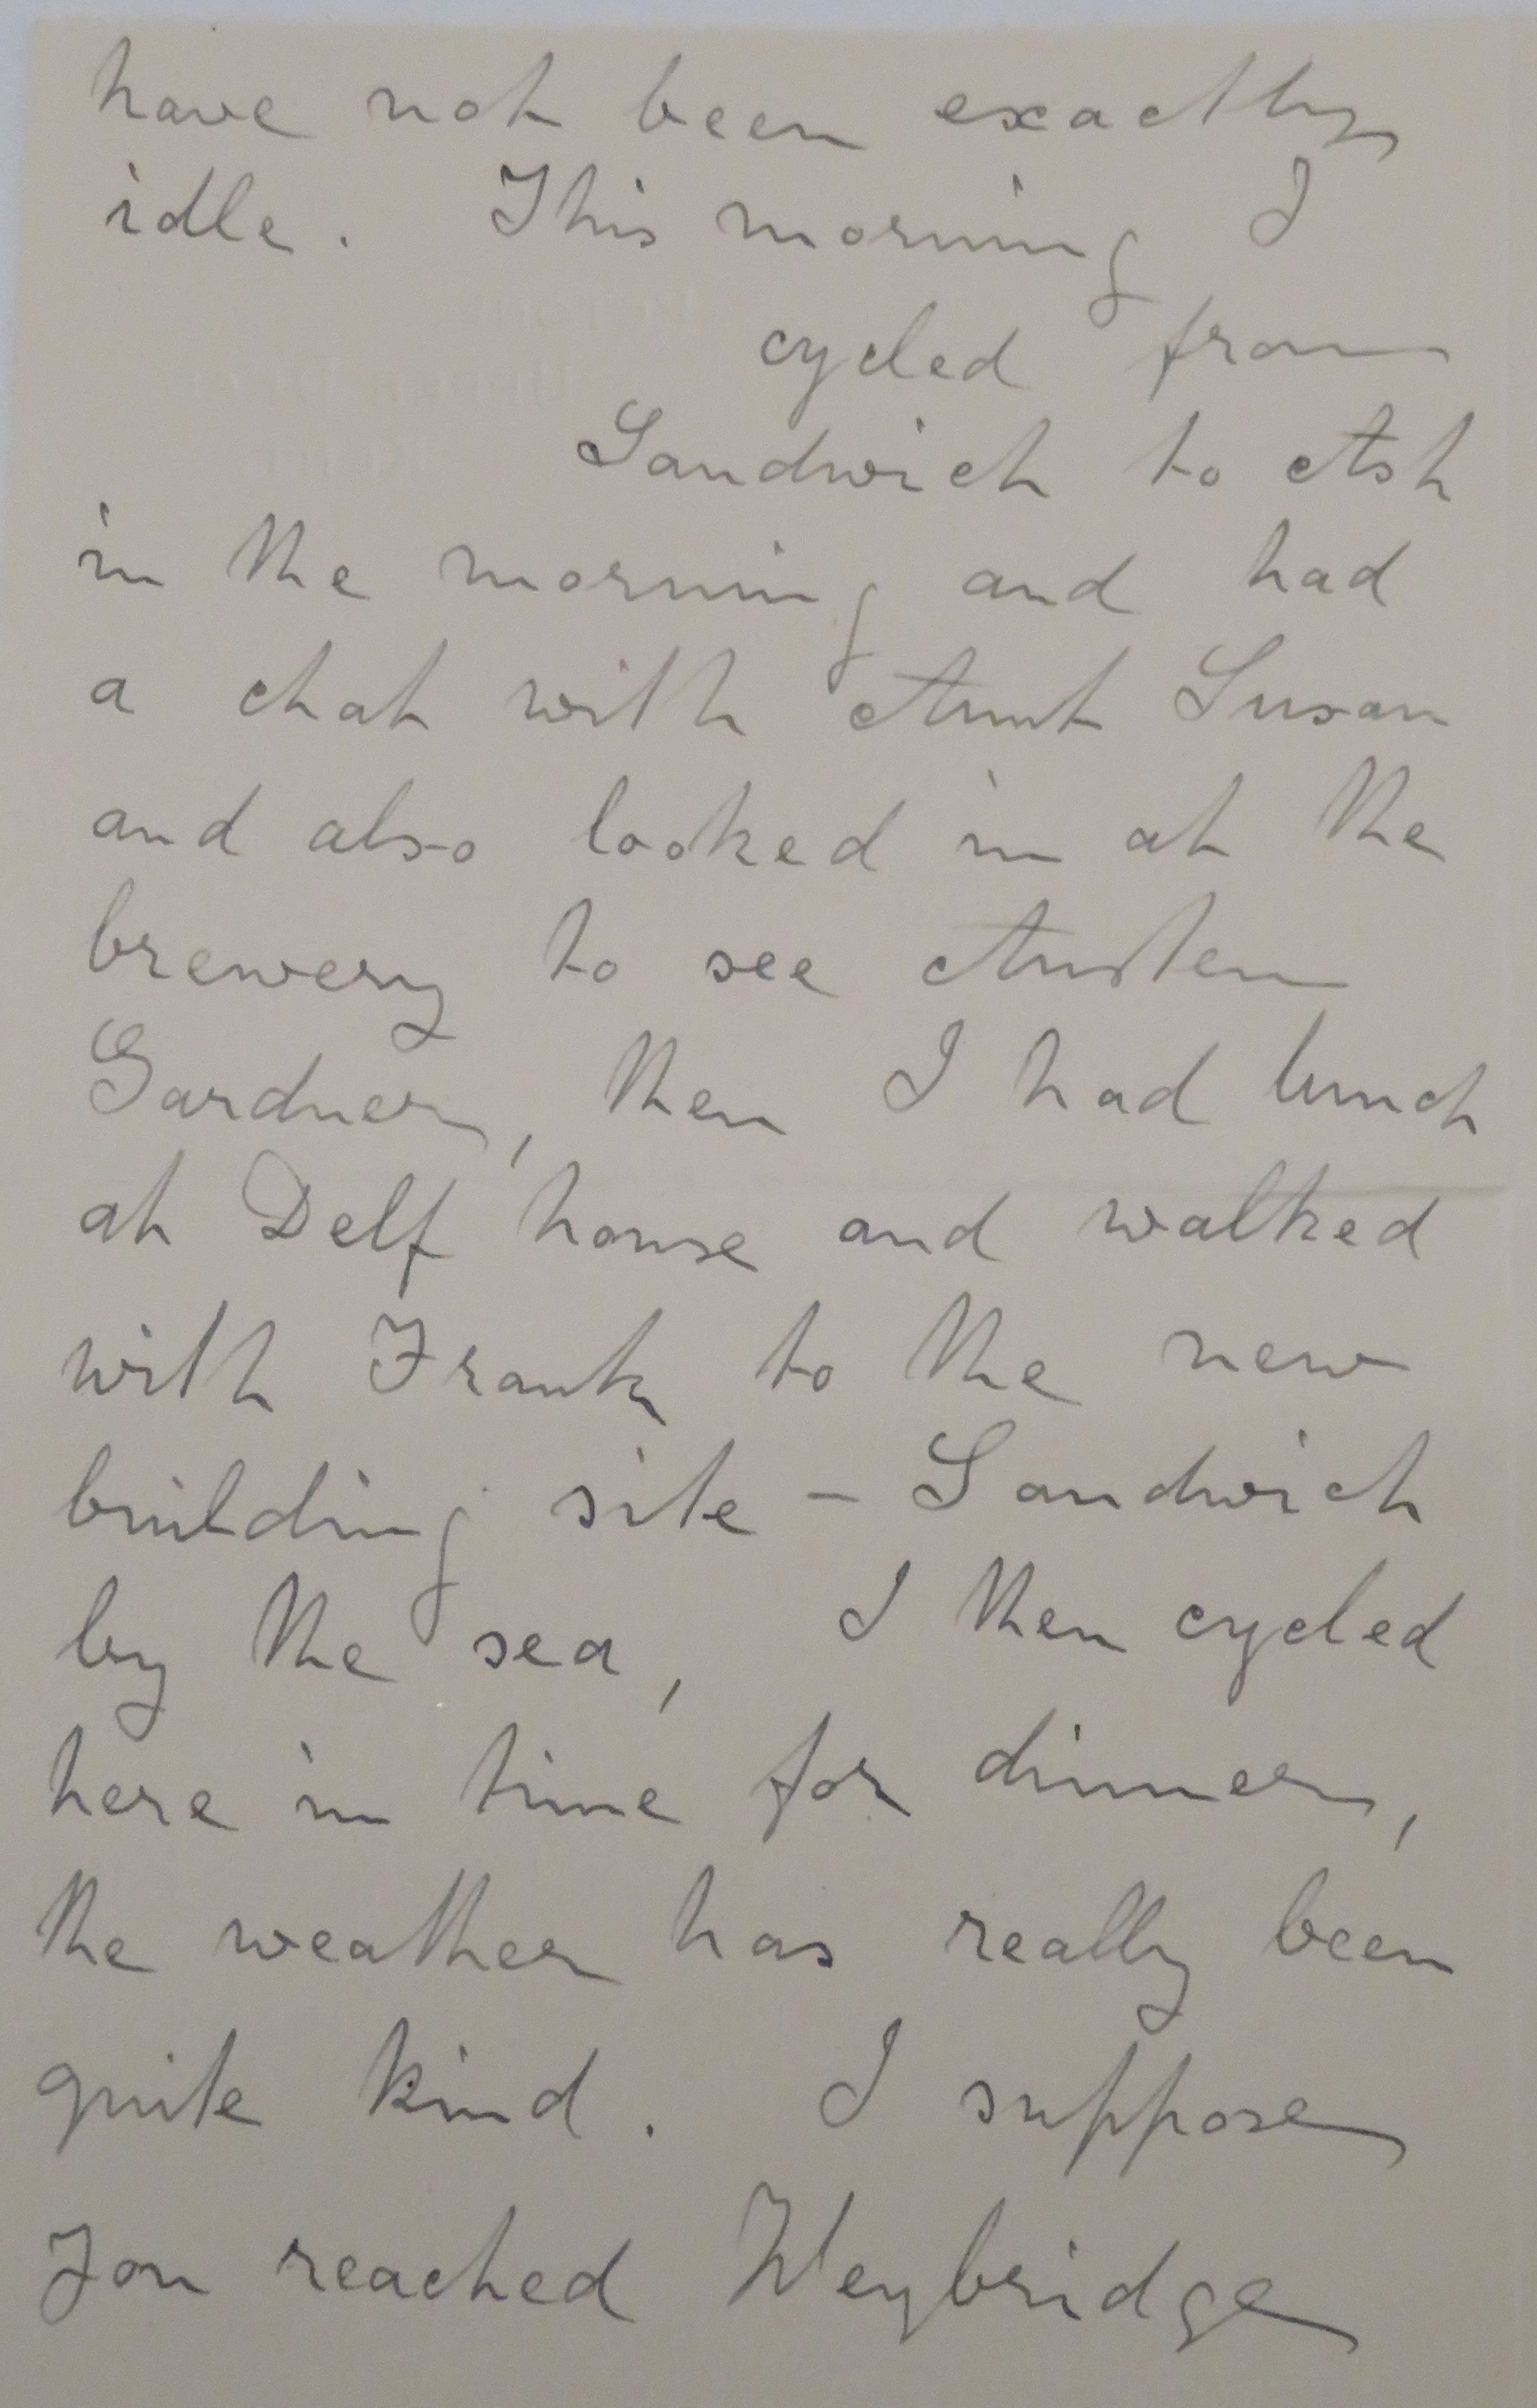 have not been exactly
idle. This morning I
cycled from
Sandwich to Ash
in the morning and had
a chat with Aunt Susan
and also looked in at the
brewery to see Austen
Gardner, then I had lunch
at Delf house and walked
with Frank to the new
building site - Sandwich
by the sea, I then cycled
here in time for dinner,
the weather has really been
quite kind. I suppose
you reached Weybridge